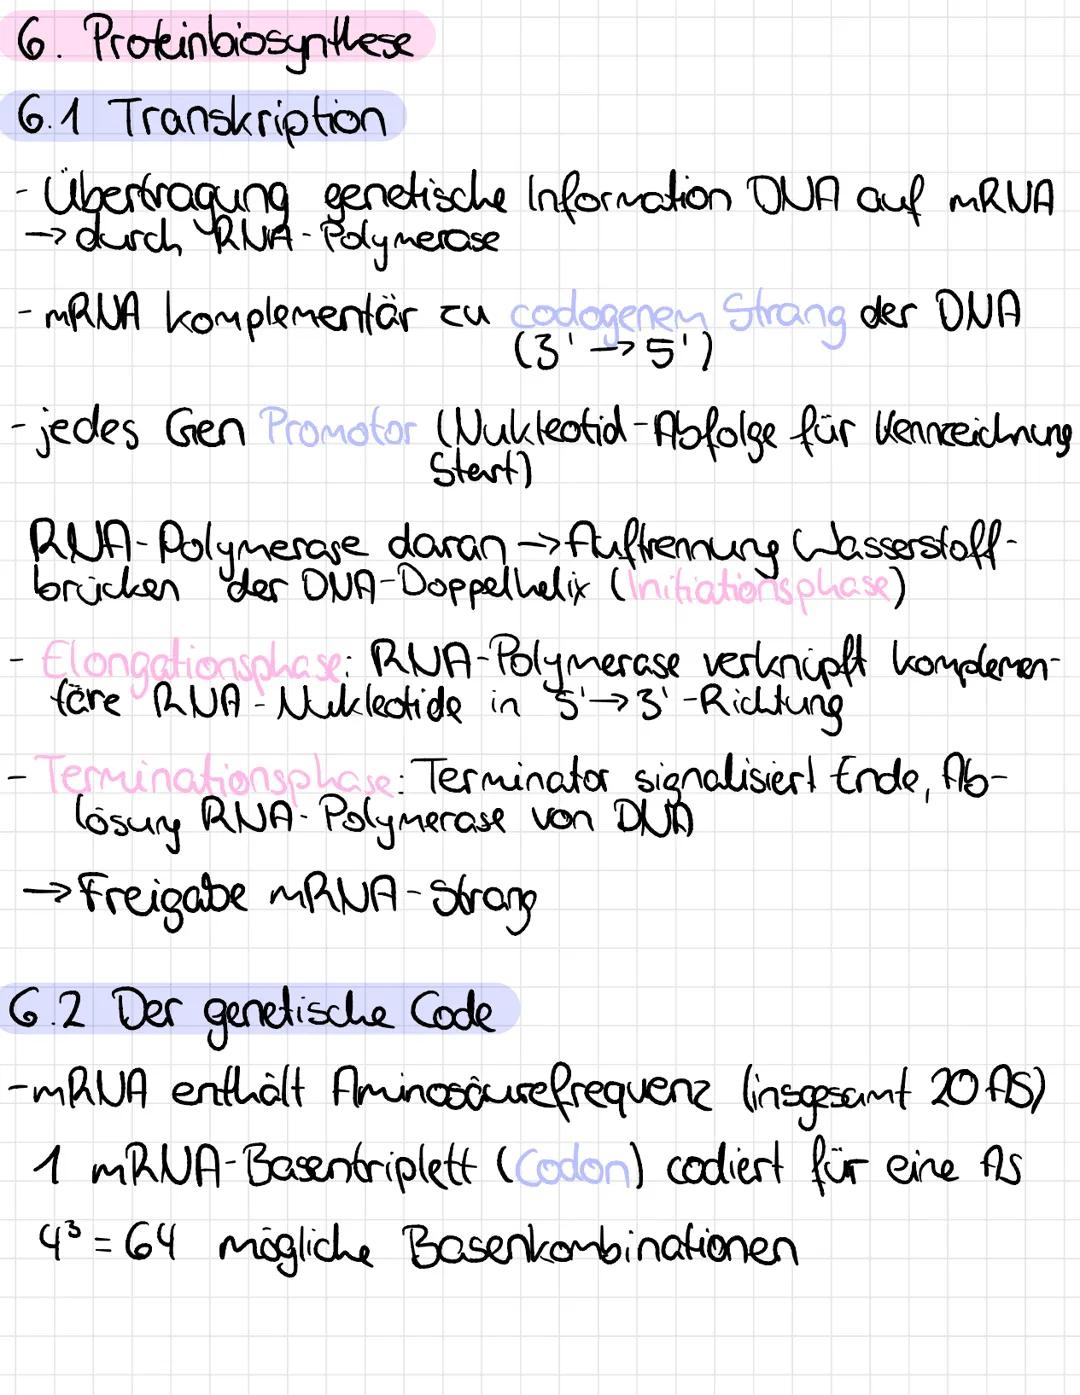 6. Proteinbiosynthese
6.1 Transkription
- Übertragung genetische Information DNA auf mRNA
→ durch RNA-Polymerase
- mRNA komplementär zu codogenem Strang der DNA
(3' → 5')
- jedes Gen Promotor (Nukleotid-Abfolge für Kennzeichnung
Start)
RNA-Polymerase daran → Auftrennung Wasserstoff-
brücken der DNA-Doppelhelix (Initiationsphase)
- Elongationsphase: RNA-Polymerase verknüpft komplemen-
täre RNA-Nukleotide in 5' → 3'-Richtung
- Terminationsphase: Terminator signalisiert Ende, Ab-
lösung RNA-Polymerase von DNA
→ Freigabe mRNA-Strang
6.2 Der genetische Code
- mRNA enthält Aminosäurefrequenz (insgesamt 20 AS)
1 mRNA-Basentriplett (Codon) codiert für eine AS
4³ = 64 mögliche Basenkombinationen